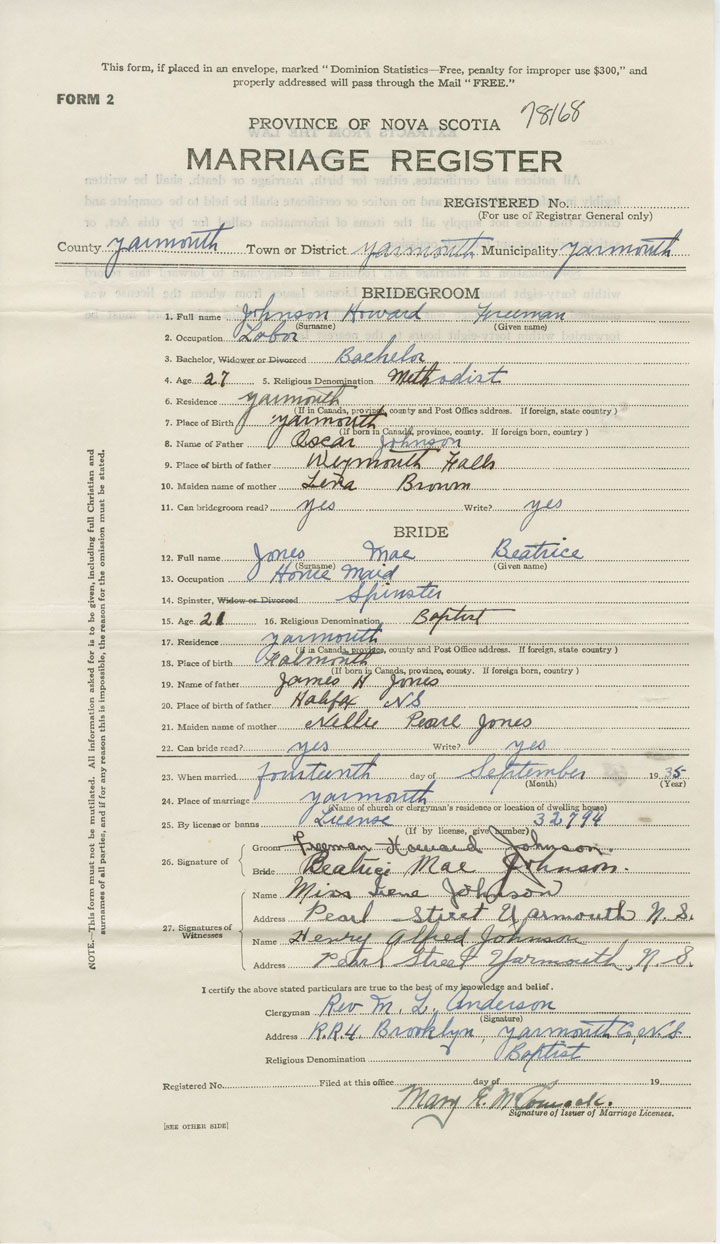 This form, if placed in an envelope, marked "Dominion Statistics—Free, penalty for improper use $300," and
properly addressed will pass through the Mail "FREE."
FORM 2
78168
PROVINCE OF NOVA SCOTIA
MARRIAGE REGISTER
REGISTERED No.
(For use of Registrar General only)
County Yarmouth Town or District Yarmouth Municipality Yarmouth
BRIDEGROOM
1. Full name Johnson Howard Freeman
(Surname) (Given name)
2. Occupation Labor
3. Bachelor, Widower or Divorced Bachelor
4. Age 27 5. Religious Denomination Methodist
6. Residence Yarmouth
(If in Canada, province, county and Post Office address. If foreign, state country)
7. Place of Birth Yarmouth
(If born in Canada, province, county. If foreign born, country)
8. Name of Father Oscar Johnson
9. Place of birth of father Weymouth Falls
10. Maiden name of mother Lena Brown
11. Can bridegroom read? yes Write? yes
BRIDE
12. Full name Jones Mae Beatrice
(Surname) (Given name)
13. Occupation House Maid
14. Spinster, Widow or Divorced Spinster
15. Age 21 16. Religious Denomination Baptist
17. Residence Yarmouth
(If in Canada, province, county and Post Office address. If foreign, state country)
18. Place of birth Falmouth
(If born in Canada, province, county. If foreign born, country)
19. Name of father James H Jones
20. Place of birth of father Halifx NS
21. Maiden name of mother Nellie Pearl Jones
22. Can bride read? yes Write? yes
23. When married fourteenth day of September 1935
(Month) (Year)
24. Place of marriage Yarmouth
(Name of church or clergyman's residence or location of dwelling house)
25. By license or banns License 32794
(If by license, give number)
26. Signature of
Groom Freeman Howard Johnson.
Bride Beatrice Mae Johnson.
27. Signatures of Witnesses
Name Miss Irene Johnson
Address Pearl Street Yarmouth N.S.
Name Henry Alfred Johnson
Address Pearl Street Yarmouth, N.S.
I certify the above stated particulars are true to the best of my knowledge and belief.
Clergyman Rev M. L. Anderson
(Signature)
Address R.R.4. Brooklyn, Yarmouth Co, N.S
Religious Denomination Baptist
Registered No. Filed at this office day of 19
Mary E. McCormack.
Signature of Issuer of Marriage Licenses.
[SEE OTHER SIDE]
NOTE.—This form must not be mutilated. All information asked for is to be given, including full Christian and
surnames of all parties, and if for any reason this is impossible, the reason for the omission must be stated.